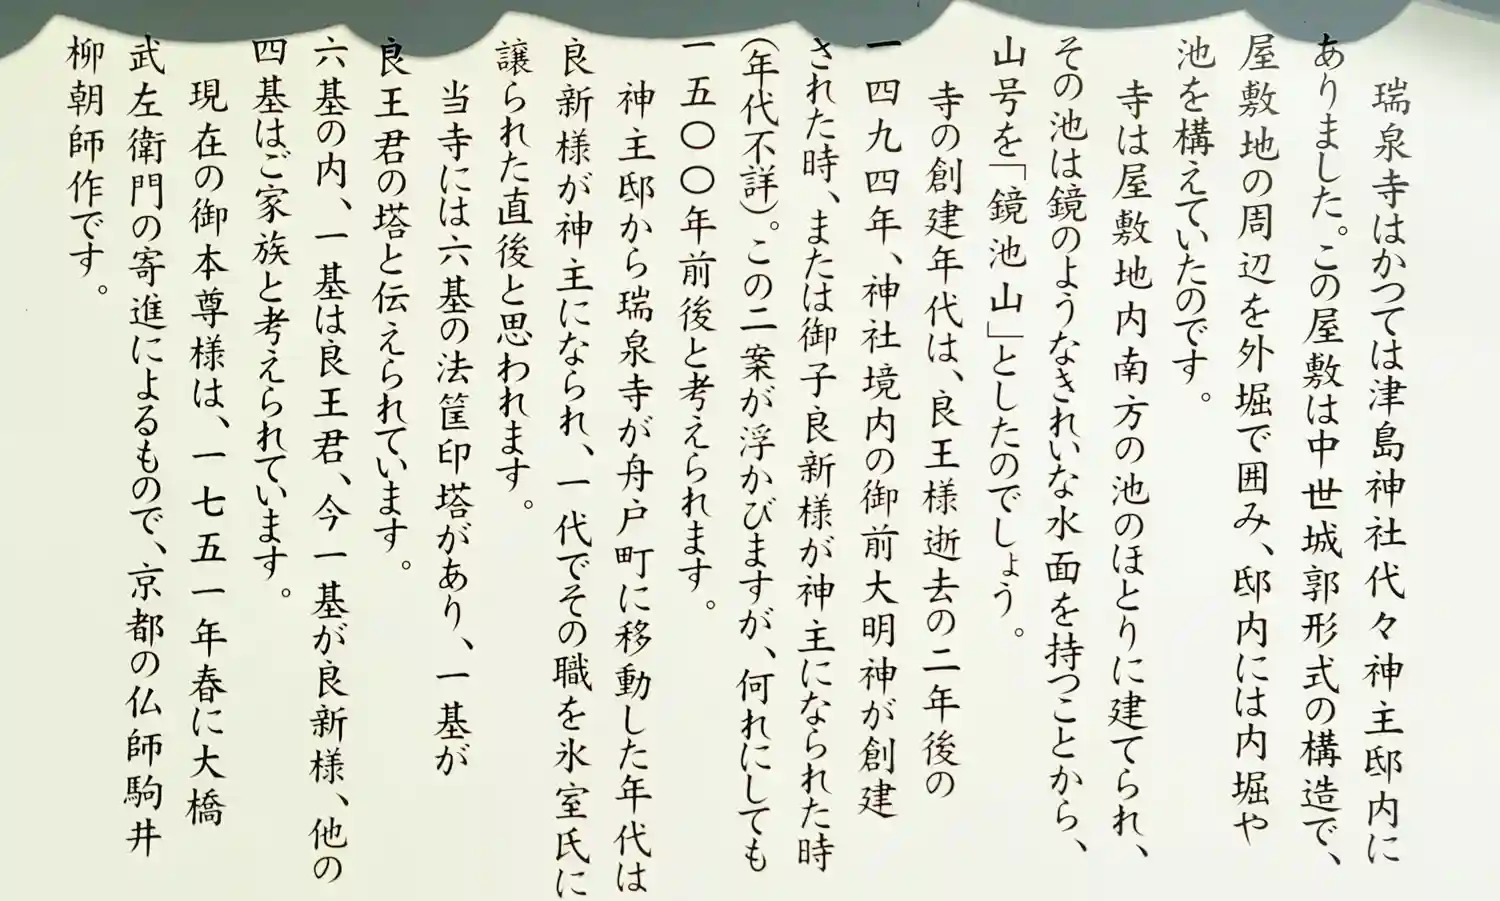 瑞泉寺はかつては津島神社代々神主邸内に
ありました。この屋敷は中世城郭形式の構造で、
屋敷地の周辺を外堀で囲み、邸内には内堀や
池を構えていたのです。
寺は屋敷地内南方の池のほとりに建てられ、
その池は鏡のようなきれいな水面を持つことから、
山号を「鏡池山」としたのでしょう。
寺の創建年代は、良王様逝去の二年後の
一四九四年、神社境内の御前大明神が創建
された時、または御子良新様が神主になられた時
(年代不詳)。この二案が浮かびますが、何れにしても
一五〇〇年前後と考えられます。
神主邸から瑞泉寺が舟戸町に移動した年代は
良新様が神主になられ、一代でその職を氷室氏に
譲られた直後と思われます。
当寺には六基の法筐印塔があり、一基が
良王君の塔と伝えられています。
六基の内、一基は良王君、今一基が良新様、他の
四基はご家族と考えられています。
現在の御本尊様は、一七五一年春に大橋
武左衛門の寄進によるもので、京都の仏師駒井
柳朝師作です。